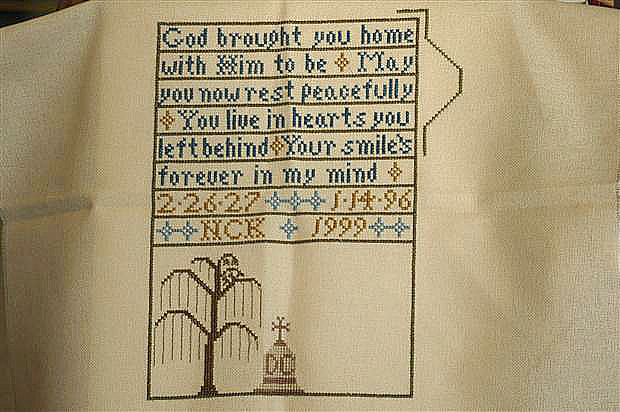 God brought you home
with Him to be May
you now rest peacefully
You live in hearts you
left behind Your smile's
forever in my mind
2·26·27 1·14·96
NCK 1999
DC